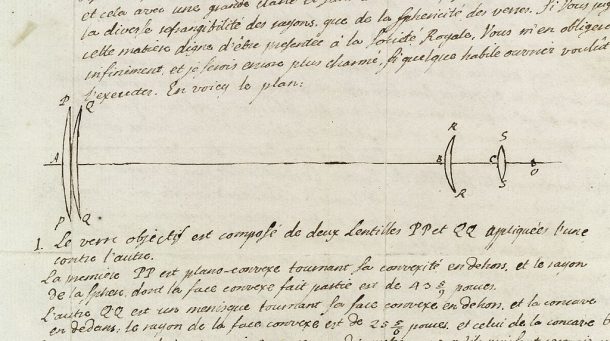 et cela avec une grande clarté et
la diverse refrangibilité des rayons, que de la sphericité des verres. Si Vous
cette matiere digne d'être presentée à la Societé Royale, Vous m'en obligerez
infiniment, et je serois encore plus charmé, si quelque habile ouvrier vouloit
l'executer. En voicy le plan:
P Q R S
A B C O
P Q R S
1. Le verre objectif est composé de deux Lentilles PP et QQ appliquées l'une
contre l'autre.
La premiere PP est plano-convexe tournant sa convexité en dehors, et le rayon
de la sphere, dont la face convexe fait partie est de 43 5/9 pouces.
L'autre QQ est un menisque tournant sa face convexe en dehors, et la concave
en dedans; le rayon de la face convexe est de 25 5/6 pouces, et celui de la concave